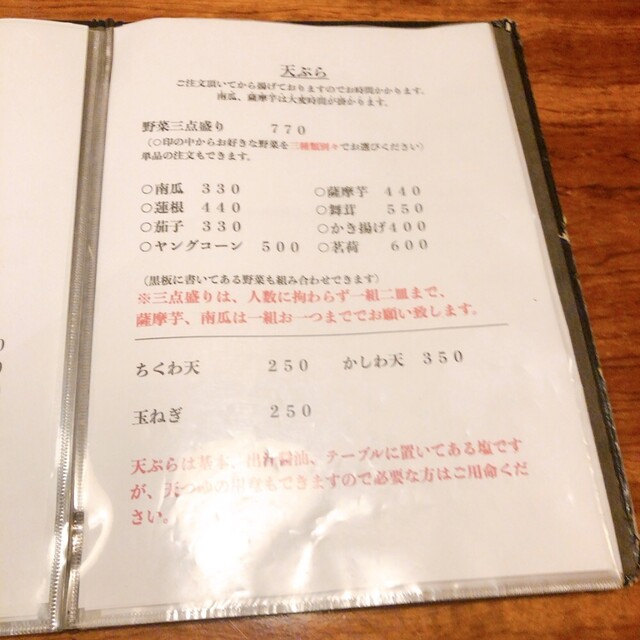 天ぷら
ご注文頂いてから揚げておりますのでお時間かかります。
南瓜、薩摩芋は大変時間が掛かります。
野菜三点盛り 770
（○印の中からお好きな野菜を三種類別々でお選びください）
単品の注文もできます。
○南瓜 330 ○薩摩芋 440
○蓮根 440 ○舞茸 550
○茄子 330 ○かき揚げ400
○ヤングコーン 500 ○茗荷 600
（黒板に書いてある野菜も組み合わせできます）
※三点盛りは、人数に拘わらず一組二皿まで、
薩摩芋、南瓜は一組お一つまででお願い致します。
ちくわ天 250 かしわ天 350
玉ねぎ 250
天ぷらは基本、出汁醤油、テーブルに置いてある塩です
が、天つゆの用意もできますので必要な方はご用命くだ
さい。